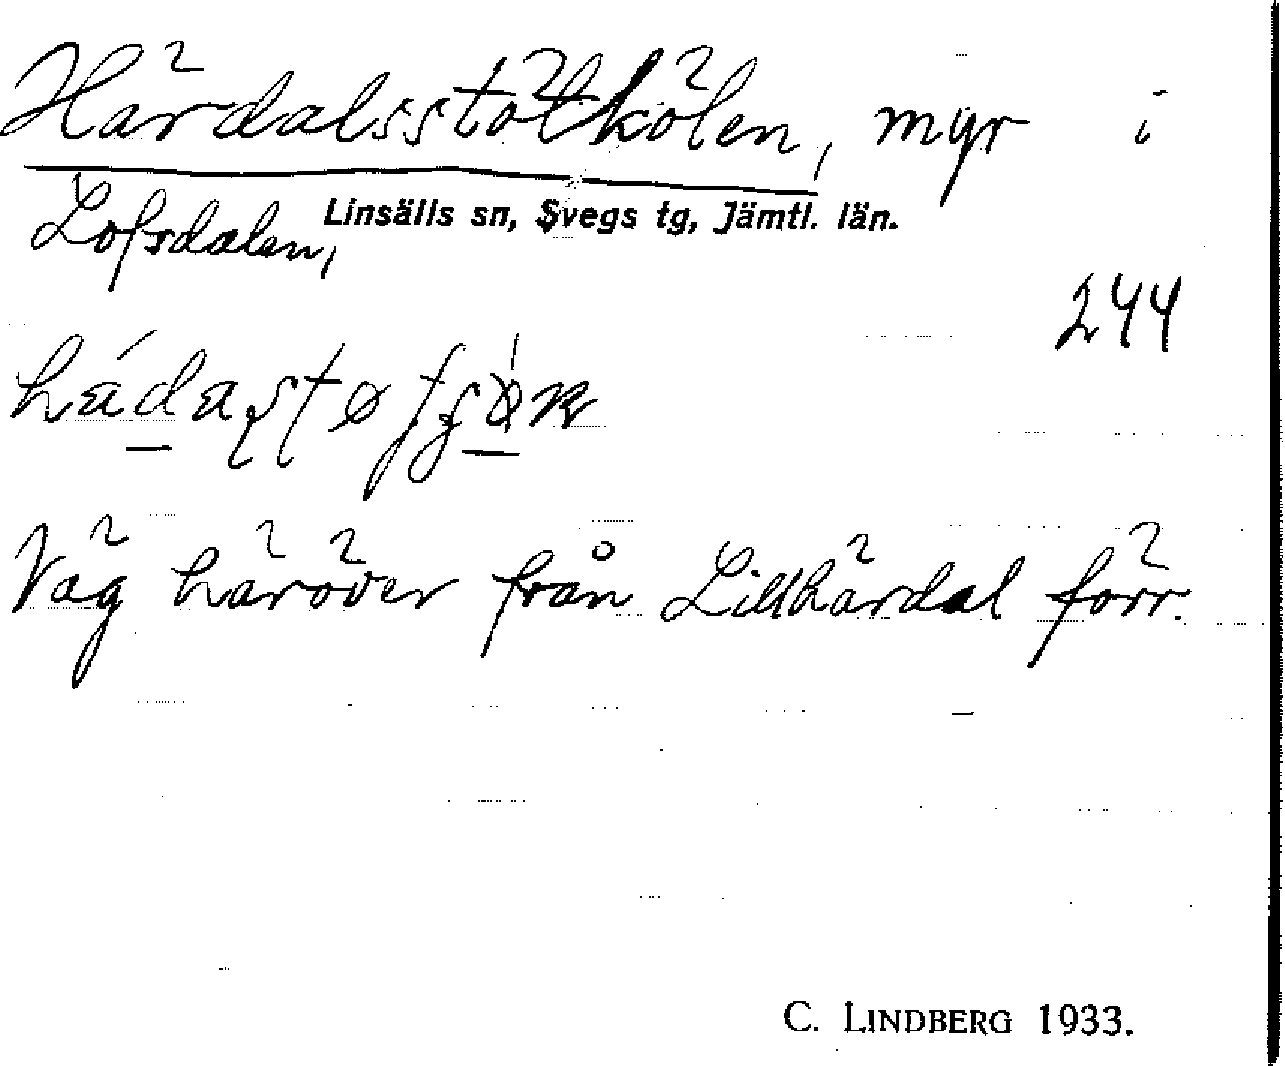 Härdalsstötkölen, myr i
Linsälls sn, Svegs tg, Jämtl. län.
Lofsdalen,
244
Väg häröver från Lillhärdal förr.
C. LINDBERG 1933.